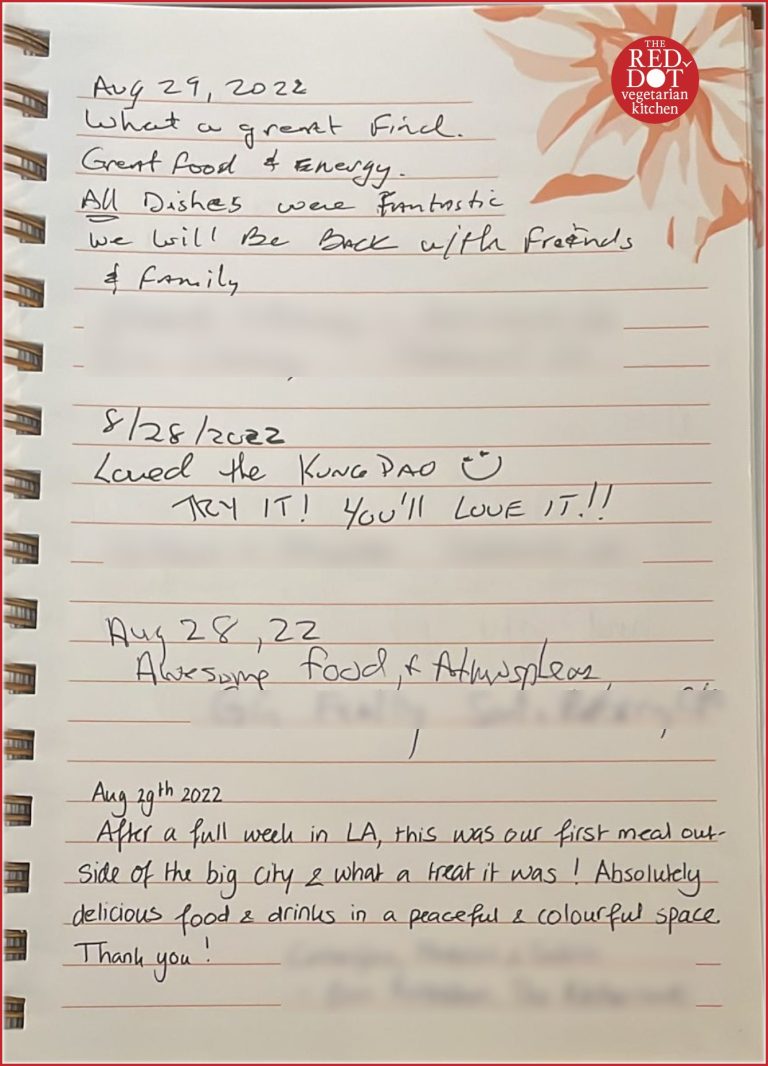 THE
RED
DOT
vegetarian
kitchen
Aug 29, 2022
What a great Find.
Great food & Energy.
All Dishes were Fantastic
We Will Be Back with friends
& Family
8/28/2022
Loved the KUNG PAO
TRY IT! YOU'll LOVE IT!!
Aug 28, 22
Awesome food, &
Aug 29th 2022
After a full week in LA, this was our first meal out-
side of the big city & what a treat it was! Absolutely
delicious food & drinks in a peaceful & colourful space.
Thank you!